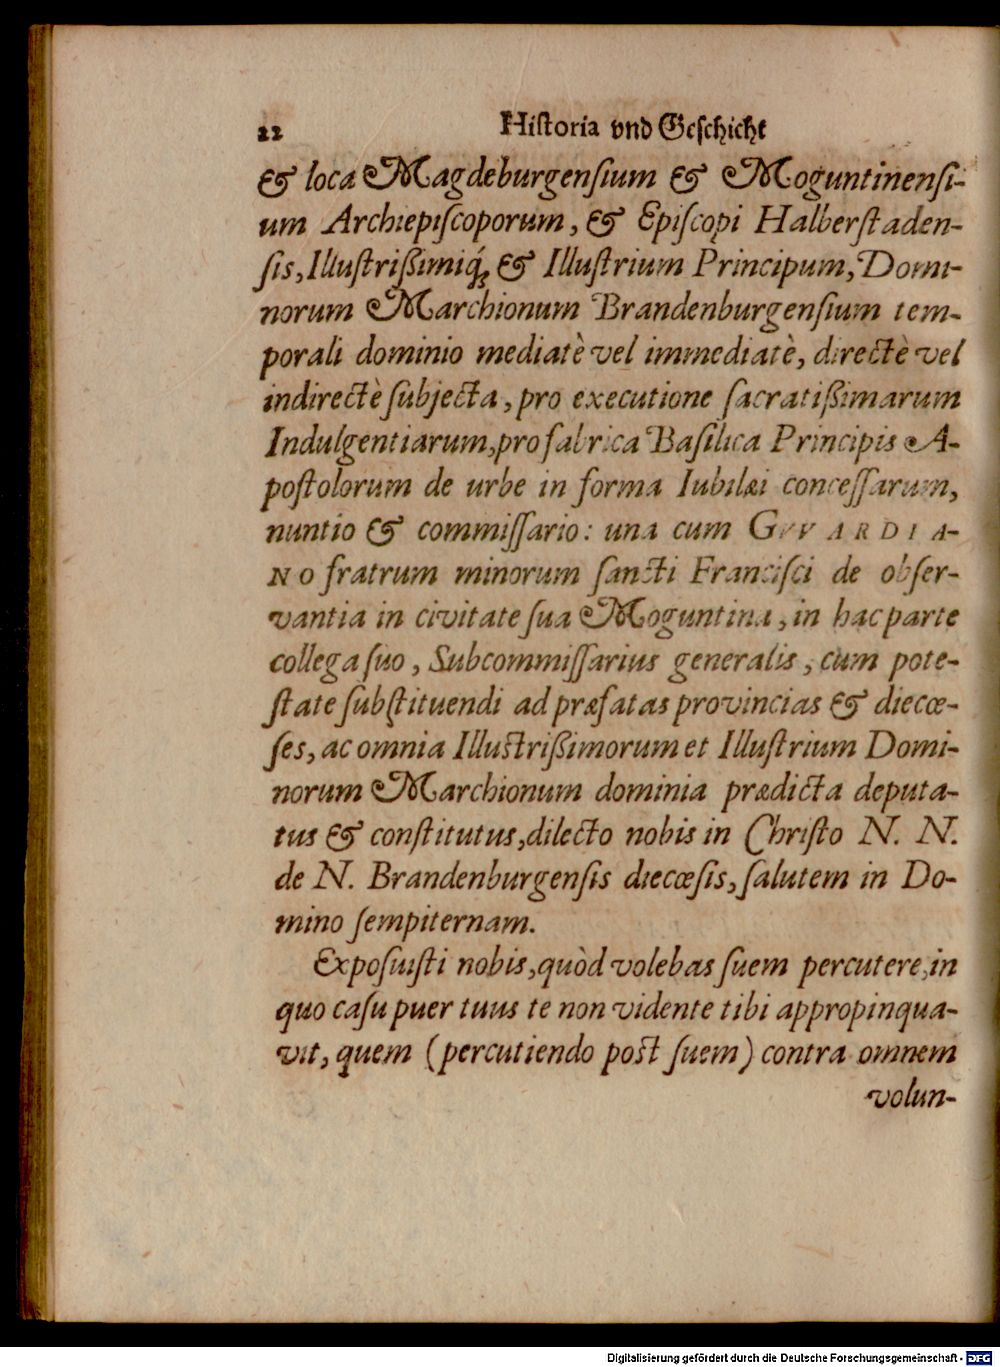 22 Hiſtoria vnd Geſchicht
& loca Magdeburgenſium & Moguntinenſi-
um Archiepiſcoporum, & Epiſcopi Halberſtaden-
ſis, Illuſtrißimiq́; & Illuſtrium Principum, Domi-
norum Marchionum Brandenburgenſium tem-
porali dominio mediatè vel immediatè, directè vel
indirectè ſubjecta, pro executione ſacratißimarum
Indulgentiarum, pro fabrica Baſilica Principis A-
poſtolorum de urbe in forma Iubilæi conceſſarum,
nuntio & commiſſario: una cum GVVARDIA-
NO fratrum minorum ſancti Franciſci de obſer-
vantia in civitate ſua Moguntina, in hac parte
collega ſuo, Subcommiſſarius generalis, cum pote-
ſtate ſubſtituendi ad præfatas provincias & diecœ-
ſes, ac omnia Illuſtrißimorum et Illuſtrium Domi-
norum Marchionum dominia prædicta deputa-
tus & conſtitutus, dilecto nobis in Chriſto N. N.
de N. Brandenburgenſis diecœſis, ſalutem in Do-
mino ſempiternam.
Expoſuiſti nobis, quòd volebas ſuem percutere, in
quo caſu puer tuus te non vidente tibi appropinqua-
vit, quem (percutiendo poſt ſuem) contra omnem
volun-
Digitalisierung gefördert durch die Deutsche Forschungsgemeinschaft - DFG